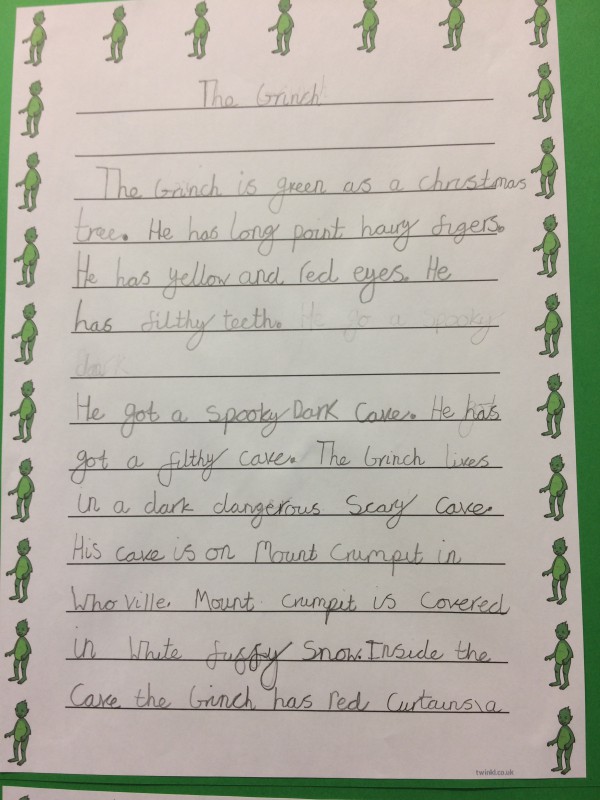 The Grinch
The Grinch is green as a christmas
tree. He has long point hairy figers.
He has yellow and red eyes. He
has filthy teeth. He go a spooky
dark
He got a spooky Dark Cave. He has
got a filthy cave. The Grinch lives
in a dark dangerous Scary Cave.
His cave is on Mount Crumpit in
Who Ville. Mount Crumpit is Covered
in White fuffy Snow. Inside the
Cave the Grinch has red Curtains\a
twinkl.co.uk